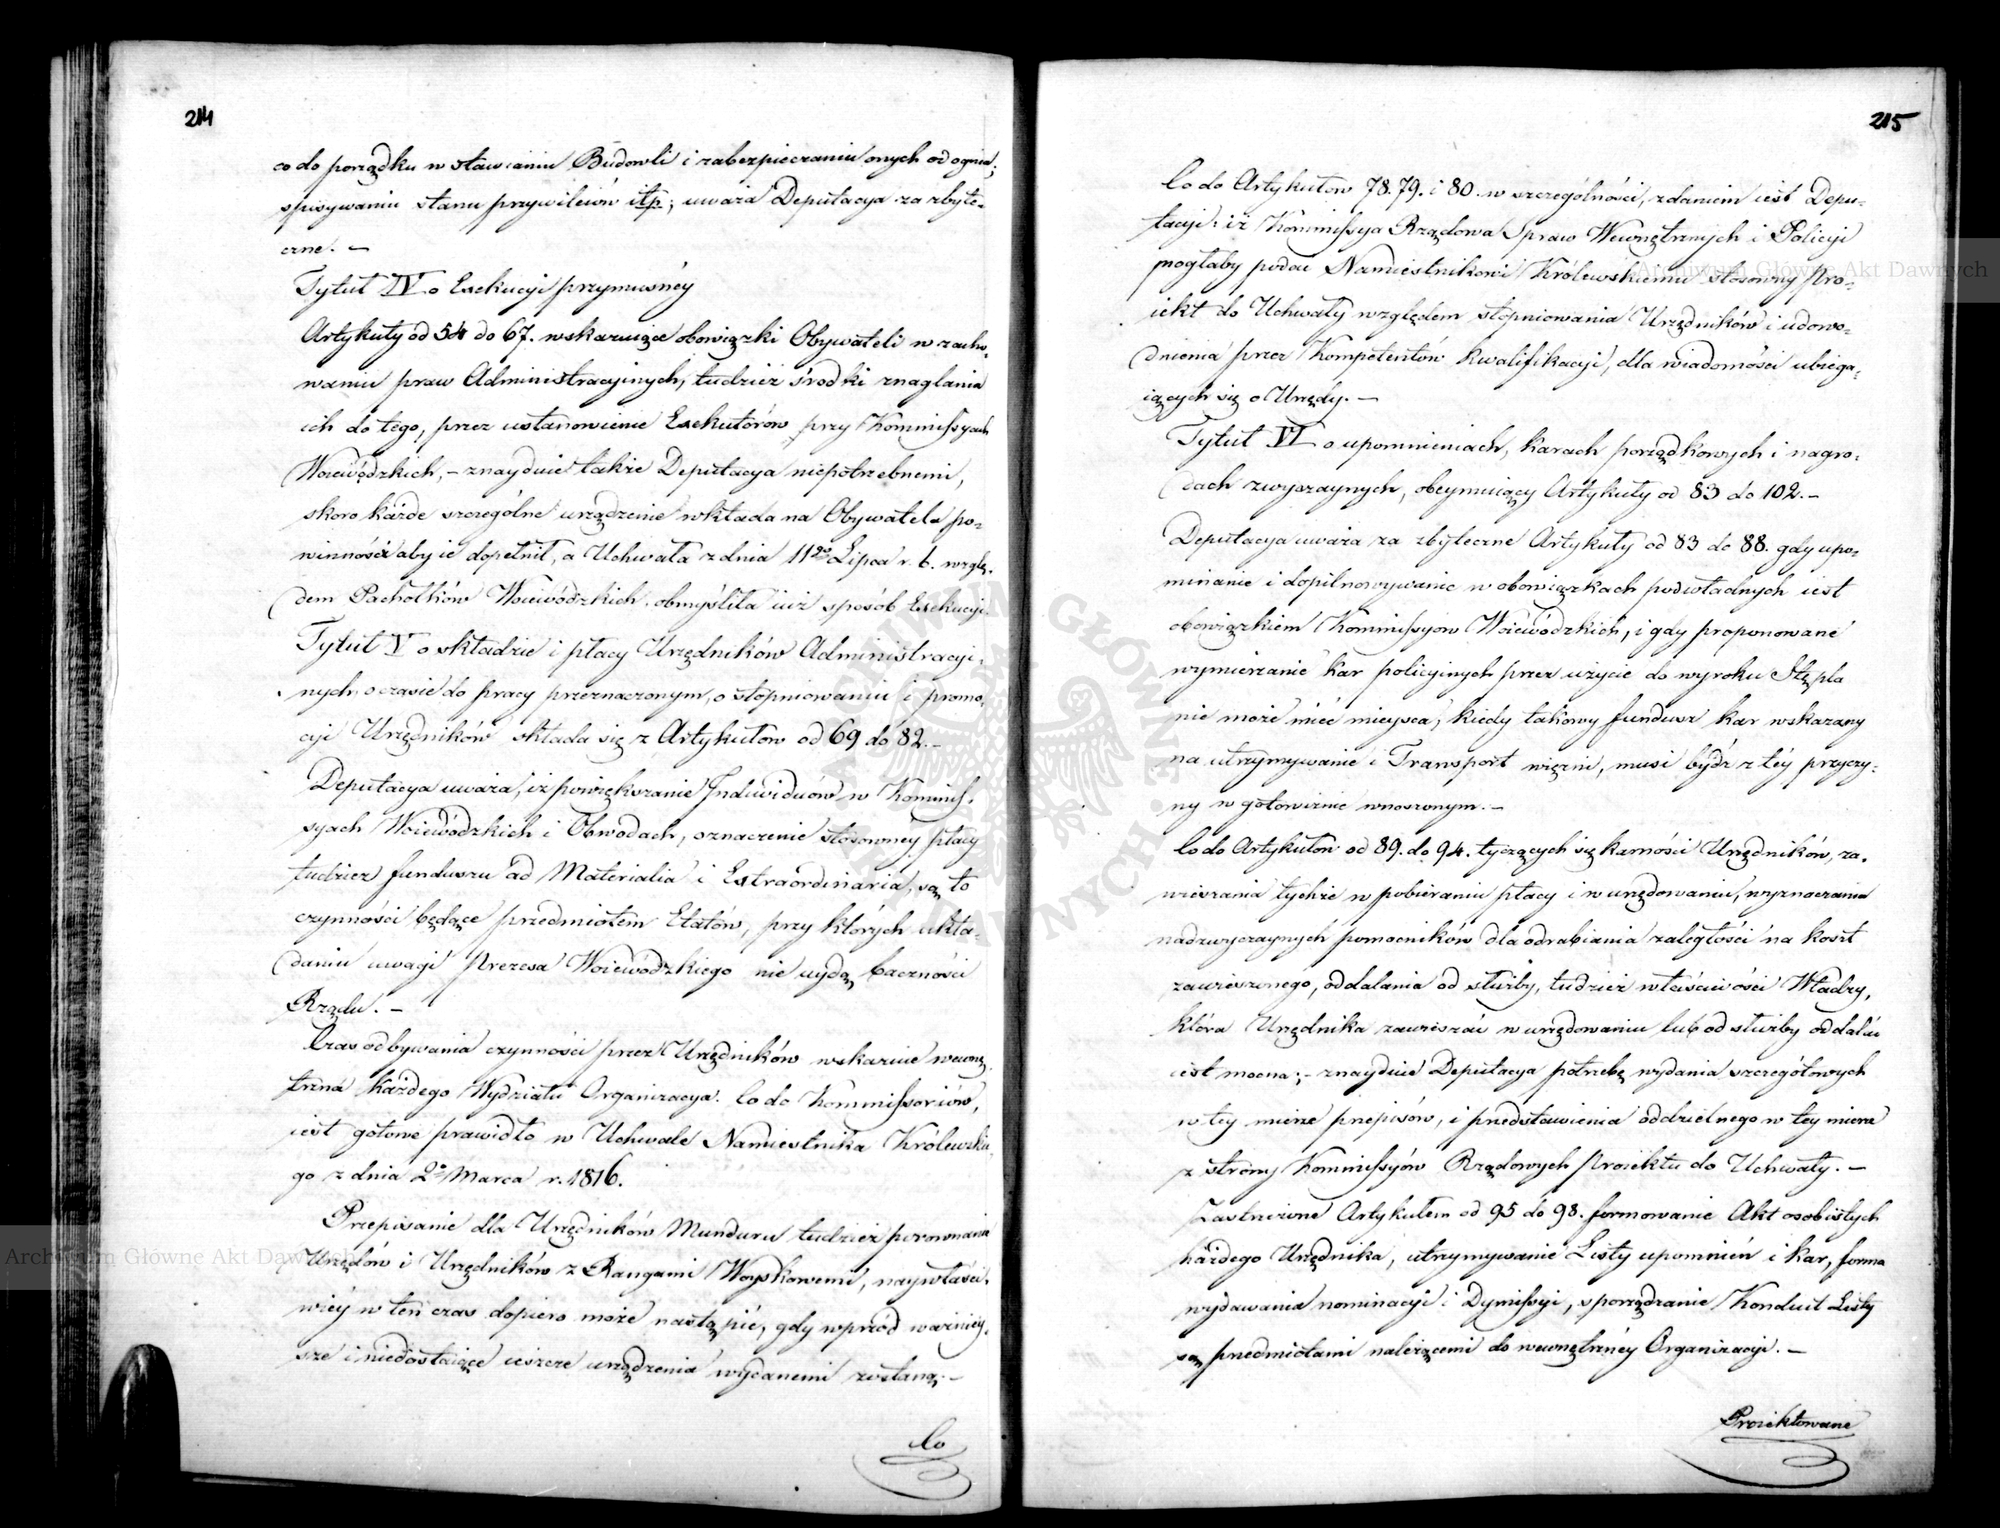 214
co do porządku w stawianiu Budowli i zabezpieczaniu onych od ognia;
spisywaniu stanu przywileiów itp; uważa Deputacya za zbyte-
czne. —
Tytuł IV o Exekucyi przymusnéy
Artykuły od 54 do 67. wskazuiące obowiązki Obywateli w zacho-
waniu praw Administracyinych, tudzież środki znaglania
ich do tego, przez ustanowienie Exekutorów przy Kommissyach
Woiewódzkich, — znayduie także Deputacya niepotrzebnemi,
skoro każde szczególne urządzenie wkłada na Obywatela po-
winności aby ie dopełnił, a Uchwała z dnia 11go Lipca r. b. wzglę-
dem Pachołków Woiewódzkich, obmyśliła iuż sposób Exekucyi.
Tytuł V o składzie i płacy Urzędników Administracyi-
nych, o czasie do pracy przeznaczonym, o stopniowaniu i promo-
cyi Urzędników składa się z Artykułów od 69 do 82. —
Deputacya uważa, iż powiększanie Indiwiduów w Kommis-
syach Woiewódzkich i Obwodach, oznaczenie stósowney płacy
tudzież funduszu ad Materialia i Extraordinaria, są to
czynności będące przedmiotem Etatów, przy których ukła-
daniu uwagi Prezesa Woiewódzkiego nie uydą baczności
Rządu. —
Czas odbywania czynności przez Urzędników wskazuie wewnę-
trzna każdego Wydziału Organizacya. Co do Kommissoriów,
iest gotowe prawidło w Uchwale Namiestnika Królewskie-
go z dnia 2o Marca r. 1816.
Przepisanie dla Urzędników Munduru tudzież porównania
Urzędów i Urzędników z Rangami Woyskowemi, naywłaści-
wiéy w ten czas dopiero może nastąpić, gdy wprzód ważniey-
sze i niedostaiące ieszcze urządzenia wydanemi zostaną. —
Co
215
Co do Artykułów 78. 79. i 80. w szczególności, zdaniem iest Depu-
tacyi: iż Kommissya Rządowa Spraw Wewnętrznych i Policyi
mogłaby podać Namiestnikowi Królewskiemu stósowny Pro-
iekt do Uchwały względem stopniowania Urzędników i udowo-
dnienia przez Kompetentów kwalifikacyi, dla wiadomości ubiega-
iących się o Urzędy. —
Tytuł VI o upomnieniach, karach porządkowych i nagro-
dach zwyczaynych, obeymuiący Artykuły od 83 do 102. —
Deputacya uważa za zbyteczne Artykuły od 83 do 88. gdy upo-
minanie i dopilnowywanie w obowiązkach podwładnych iest
obowiązkiem Kommissyow Woiewódzkich, i gdy proponowane
wymierzanie kar policyinych przez użycie do wyroku Stępla
nie może mieć mieysca, kiedy takowy fundusz kar wskazany
na utrzymywanie i Transport więźni, musi bydź z téy przyczy-
ny w gotowiźnie wnoszonym. —
Co do Artykułów od 89. do 94. tyczących się karności Urzędników, za-
wieszania tychże w pobieraniu płacy i w urzędowaniu, wyznaczania
nadzwyczaynych pomocników dla odrabiania zaległości na koszt
zawieszonego, oddalania od służby, tudzież właściwości Władzy,
która Urzędnika zawieszać w urzędowaniu lub od służby oddalić
iest mocna; — znayduie Deputacya potrzebę wydania szczegółowych
w tey mierze przepisów, i przedstawienia oddzielnego w tey mierze
z strony Kommissyów Rządowych Proiektu do Uchwały. —
Zastrzeżone Artykułem od 95 do 98. formowanie Akt osobistych
każdego Urzędnika, utrzymywanie Listy upomnień i kar, forma
wydawania nominacyi i Dymissyi, sporządzanie Konduit Listy
są przedmiotami należącemi do wewnętrznéy Organizacyi. —
Proiektowane
Archiwum Główne Akt Dawnych
Archiwum Główne Akt Dawnych
ARCHIWUM GŁÓWNE AKT DAWNYCH